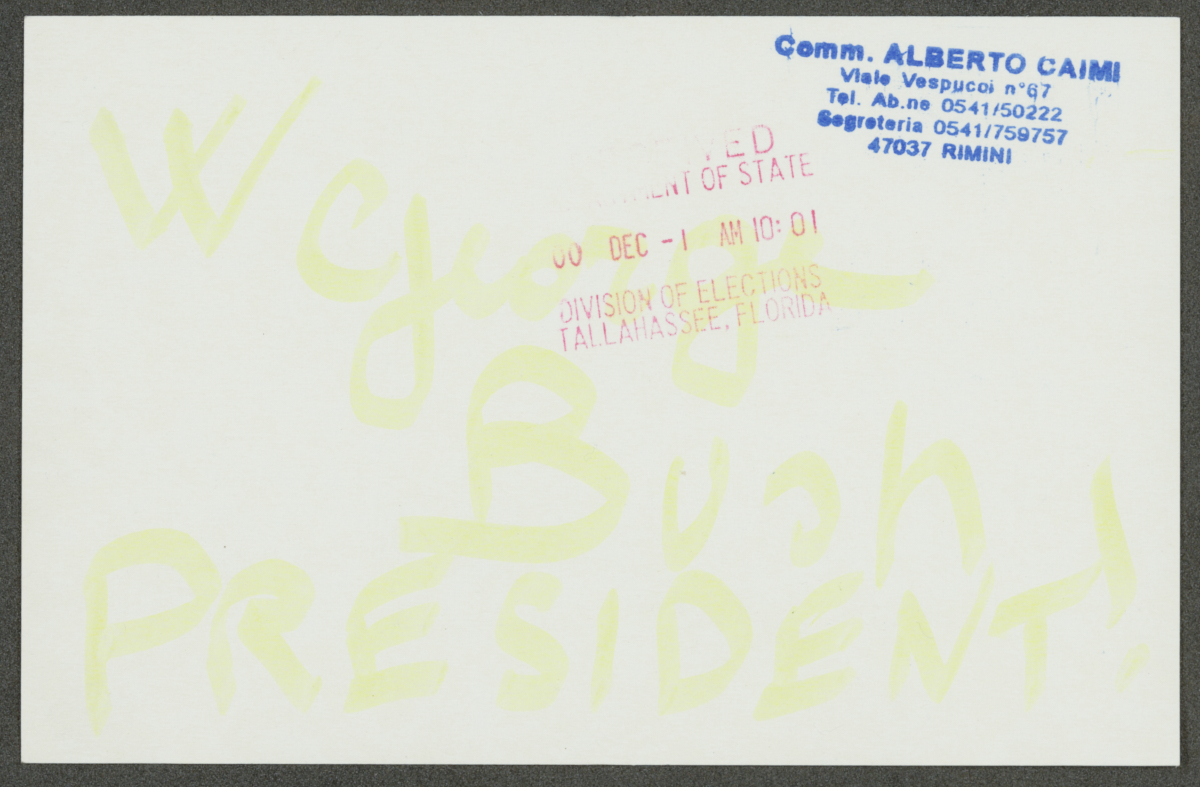 Comm. ALBERTO CAIMI
Viale Vespucci n°67
Tel. Ab.ne 0541/50222
Segreteria 0541/759757
47037 RIMINI
OF STATE
00 DEC -1 AM 10:01
DIVISION OF ELECTIONS
TALLAHASSEE, FLORIDA
W George
Bush
PRESIDENT!